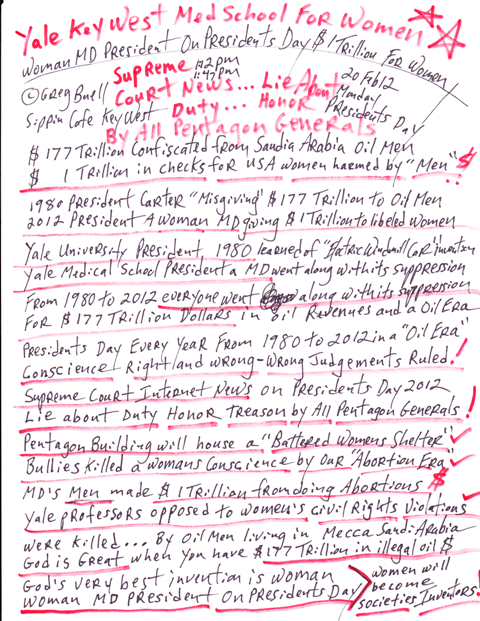 Yale Key West Med School For Women
Woman MD President On Presidents Day $1 Trillion For Women
Supreme 12pm
1:42pm
20 Feb 12
© Greg Buell Court News... Lie About Monday
Sippin Cafe Key West Duty... Honor Presidents Day
By All Pentagon Generals
$177 Trillion Confiscated from Saudia Arabia Oil Men
$ 1 Trillion in checks for USA women harmed by "Men" $!!
1980 President Carter "Misgiving" $177 Trillion to Oil Men
2012 President A Woman MD giving $1 Trillion to libeled women
Yale University President 1980 learned of "ElatricWindmillCar" invention
Yale Medical School President a MD went along with its suppression
From 1980 to 2012 everyone went along with its suppression
For $177 Trillion Dollars in oil Revenues and a Oil Era
Presidents Day Every Year From 1980 to 2012 in a "Oil Era"
Conscience Right and wrong-Wrong Judgements Ruled!
Supreme Court Internet News on Presidents Day 2012
Lie about Duty Honor Treason by All Pentagon Generals!
Pentagon Building will house a "Battered Womens Shelter"
Bullies Killed a womans Conscience by our "Abortion Era"
MD's Men made $1 Trillion from doing Abortions $
Yale professors opposed to women's civil Rights Violations
were killed... By Oil Men living in Mecca Saudi Arabia
God is Great when you have $177 Trillion in illegal oil $
God's very best invention is woman
Woman MD President On Presidents Day
women will
become
societies Inventors!